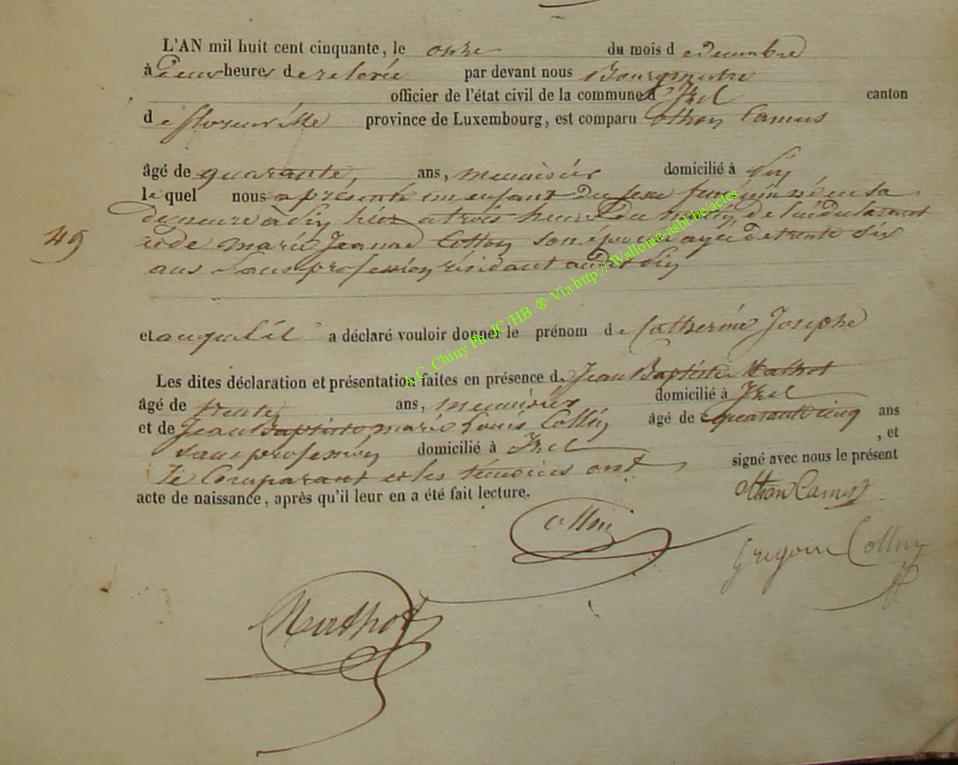 L'AN mil huit cent cinquante, le onze du mois d e decembre
à Deux heures de relevée par devant nous Bourgmestre
officier de l'état civil de la commune d' Izel canton
de florenville province de Luxembourg, est comparu Othon Camus
âgé de quarante, ans, menuisier domicilié à
le quel nous a présenté un enfant du sexe féminin né en sa
demeure à hier a trois heures du de lui déclarant
et de marie Jeanne Collin son épouse agée de trente six
49
ans Sans profession résidant audit
et auquel il a déclaré vouloir donner le prénom de Catherine Josephe
Les dites déclaration et présentation faites en présence de Jean Baptiste Mathot
âgé de trente, ans, menuisier domicilié à Izel
et de Jean Baptiste marie Louis Collin âgé de quarante cinq ans
sans profession domicilié à Izel , et
le Comparant et les témoins ont signé avec nous le présent
acte de naissance, après qu'il leur en a été fait lecture.
Othon Camus
Collin
Gregoire Collin
Mathot
C. Chiny Ph. JC/HB ® Via http://Wallonia-asbl.be/actes